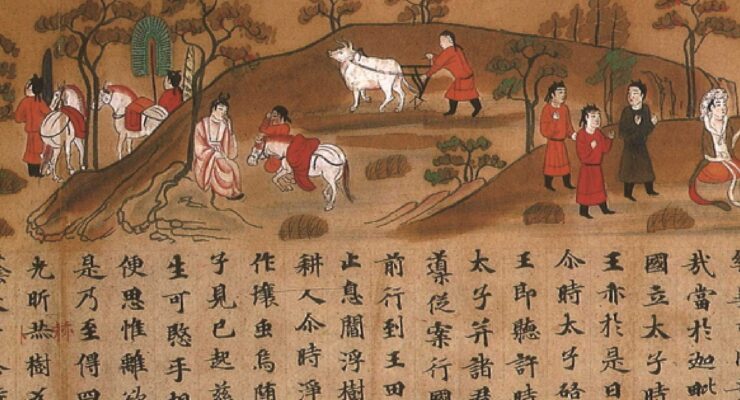 我當於迦毗
國立太子時
王亦於是日
尒時太子啓
王即聽許時
太子并諸群
導從案行國
前行到王田
止息閻浮樹
耕人尒時淨
作壤虫烏随
子見已起慈
生可愍手相
便思惟離欲
是乃至得四
光昕樹